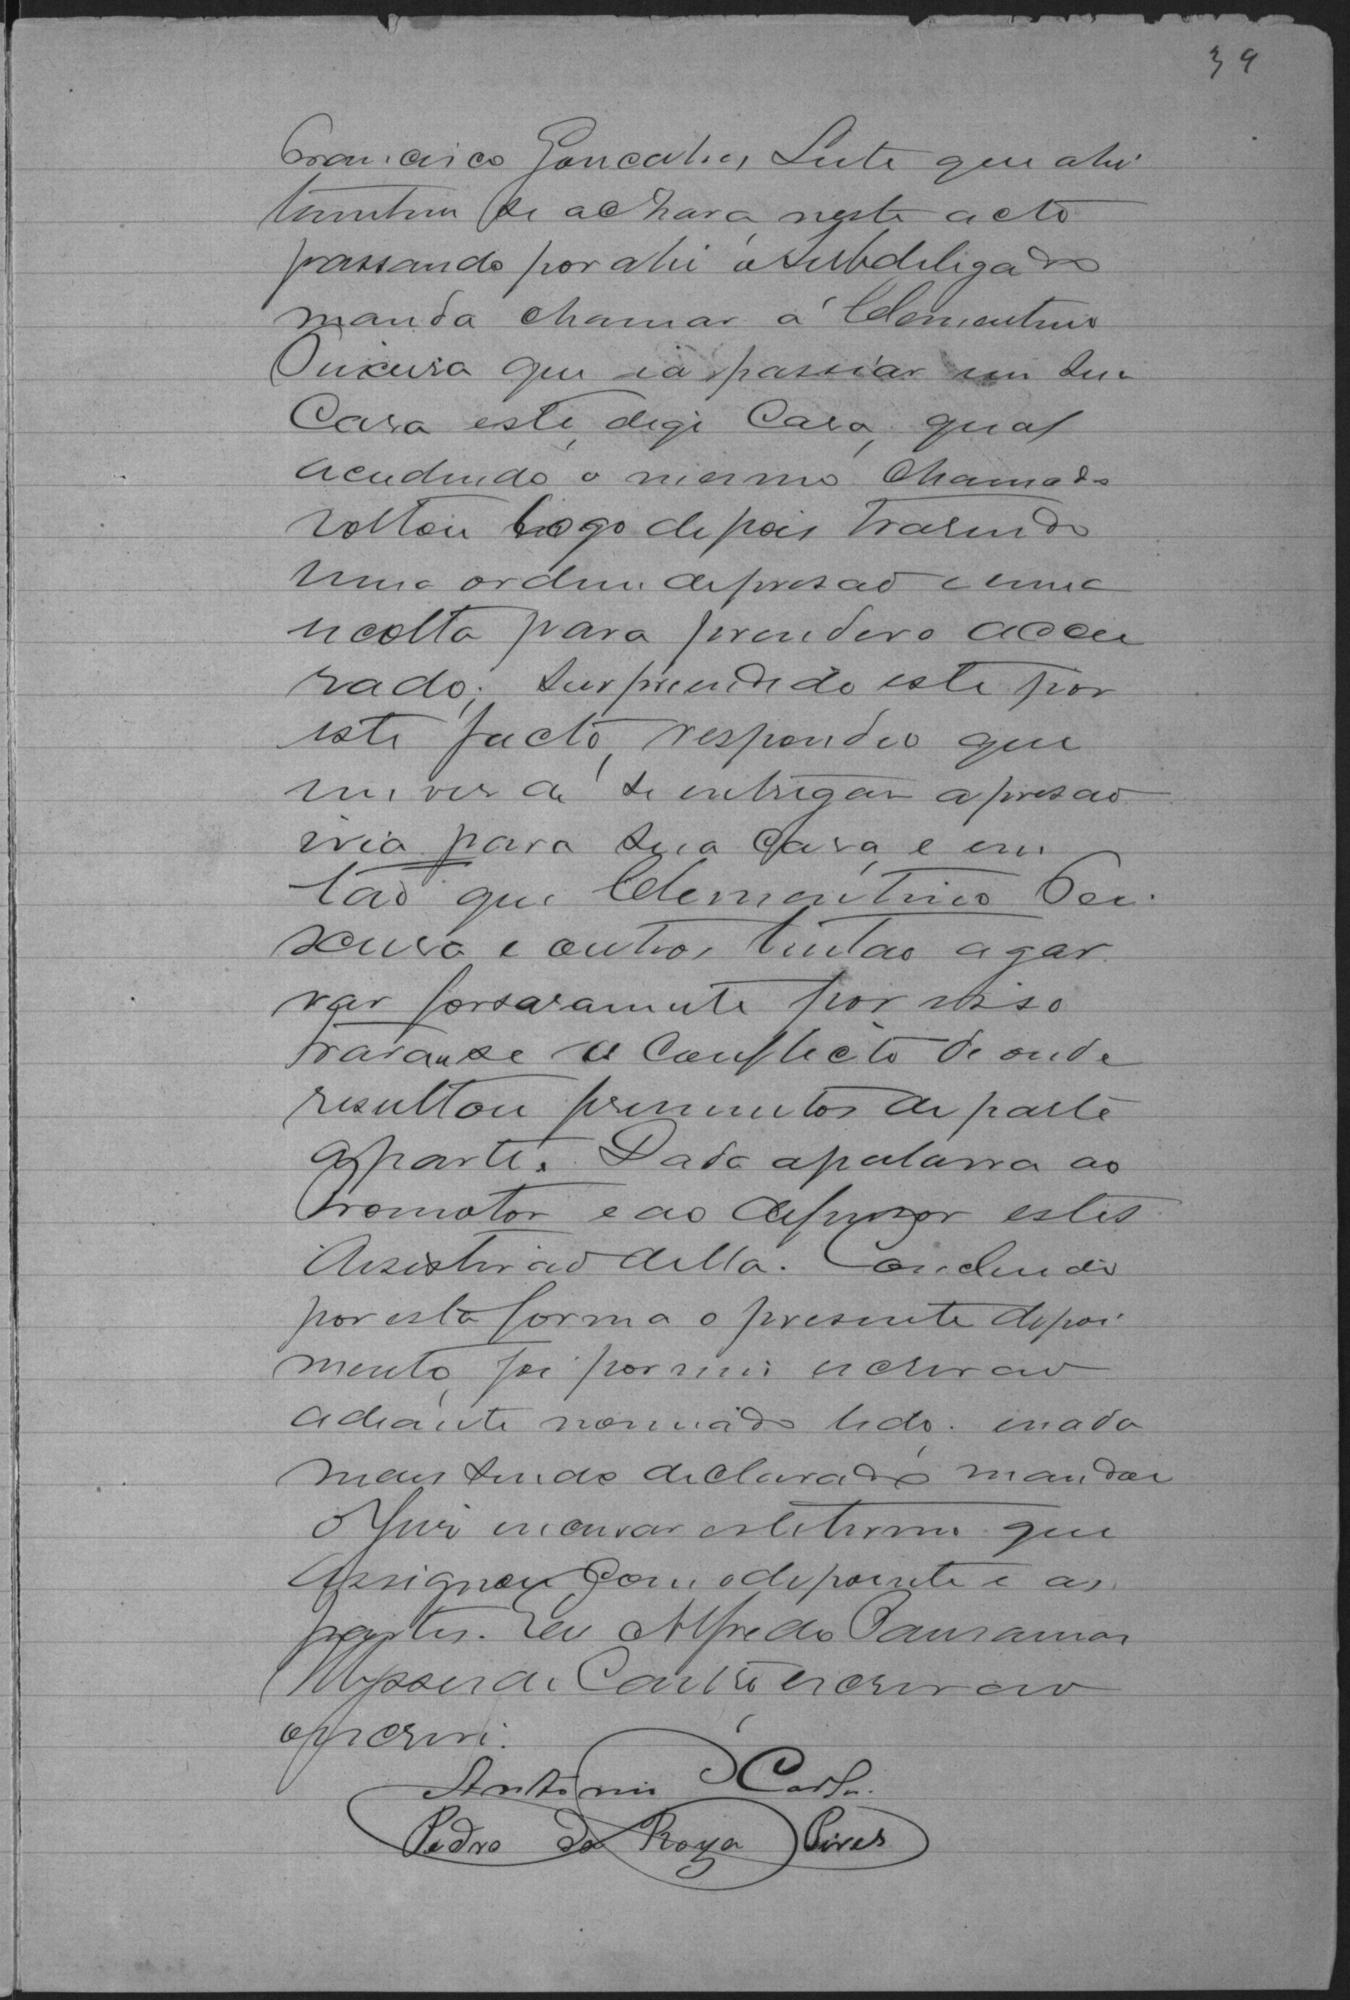 39
Francisco Goncalves Leite que ahi
tambem se achava, neste acto
passando por ahi o subdeligado
manda chamar a Clementino
que ia passiar em sua
Casa este, digi Casa, qual
acudindo o mesmo chamado
voltou logo depois trasendo
uma ordem de prisão e uma
escolta para prender o accu
sado; surprendido este por
este facto, respondeo que
em ves de se entregar a prisão
iria para sua casa, e en
tão que Clementino
e outros tentão agar
rar forsasamente por isso
travause o Conflicto de onde
resultou firimentos de parte
aparte. Dada apalavra ao
Promotor e ao defensor estes
desistirão della. Concluido
por esta forma o presente depoi
mento, foi por mim escrivão
adiante nomiado lido. e nada
mais tendo declarado mandou
o Juis encerrar este termo que
assignou com o depoente e as
partes. Eu Alfredo
Ulysses de Castro escrivão
o escrevi.
Antonio Carlos
Pedro da Roza Pires